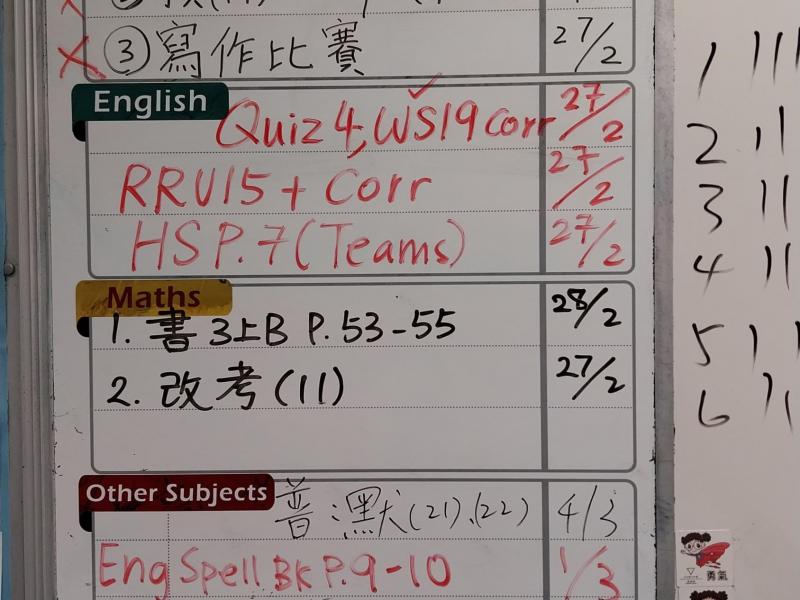 ③寫作比賽 27/2
English
Quiz 4, WS19 corr 27/2
RRU15 + Corr 27/2
HS P.7 (Teams) 27/2
Maths
1. 書 3上B P. 53-55 28/2
2. 改考(11) 27/2
Other Subjects 普 默(21)、(22) 4/3
Eng Spell BK P.9-10 1/3
1
2
3
4
5
6
勇氣